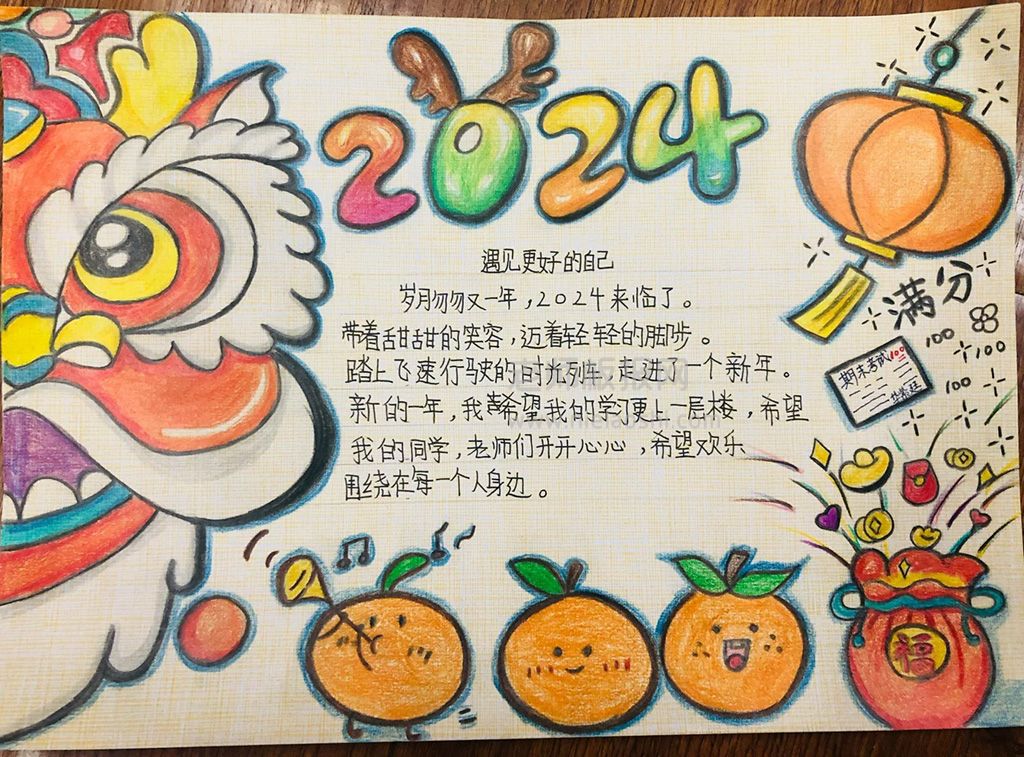 2024
遇见更好的自己
岁月匆匆又一年，2024来临了。
带着甜甜的笑容，迈着轻轻的脚步。
踏上飞速行驶的时光列车，走进了一个新年。
新的一年，我希望我的学习更上一层楼，希望
我的同学，老师们开开心心，希望欢乐
围绕在每一个人身边。
满分
100
100
100
期末考试 100
福